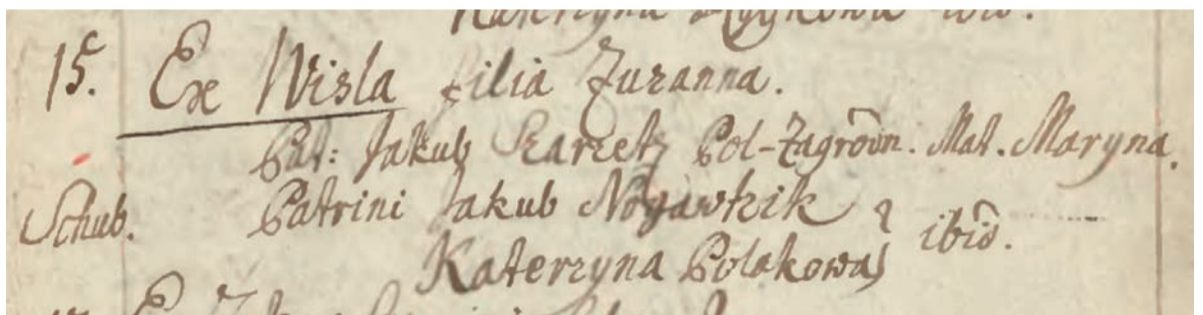 ibid.
15. Ex Wisla filia Zuzanna.
Pat: Jakub Szarzetz Pol-Zagrodn. Mat. Maryna.
Schub. Patrini Jakub Nogawczik
Katerzyna Polakowa } ibid.